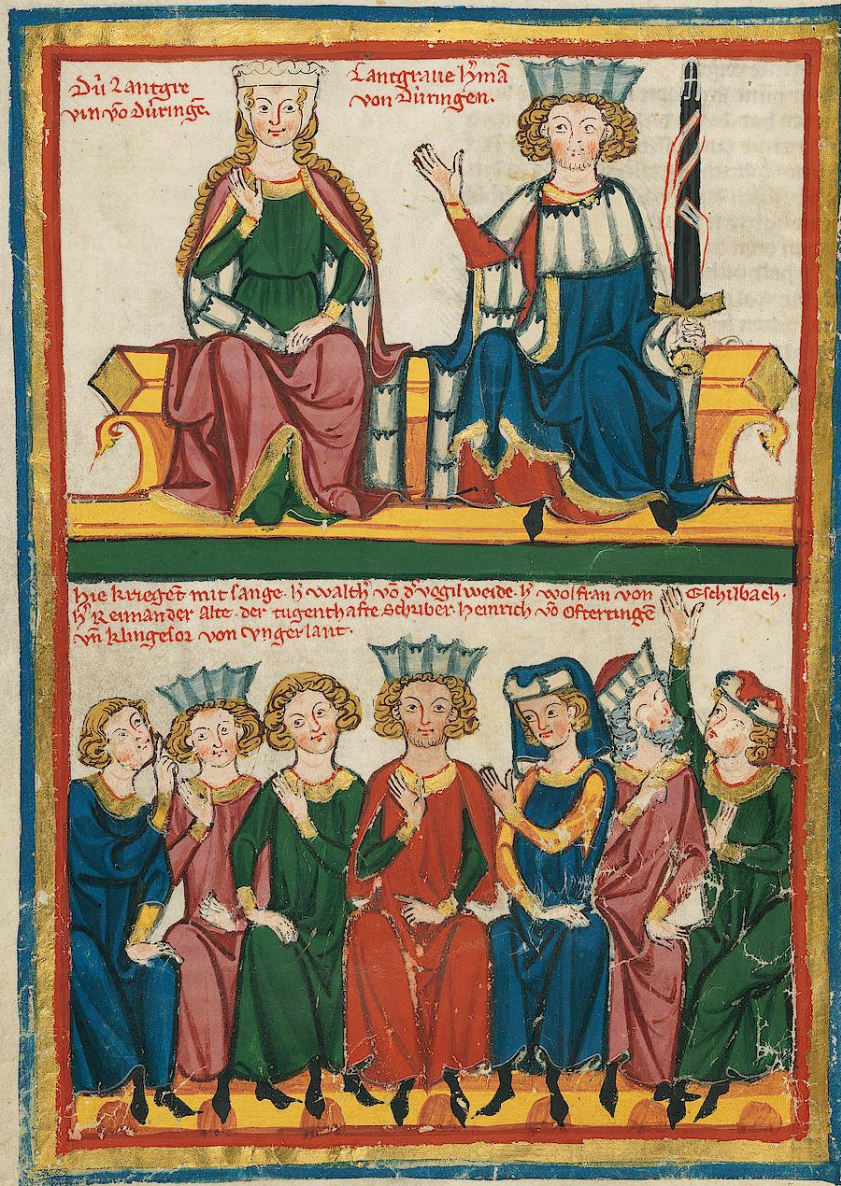 Dü Lantgre
vin võ düringẽ.
Lantgraue h̾mã
von düringen.
hie krieget mit sange. h̾ walth̾ võ d̾ vogilweide. h̾ wolfran von Eschilbach.
h̾ Reinman der Alte. der tugenthafte Schriber. Heinrich võ Ofterтingẽ
vñ klingesor von vngerlant.